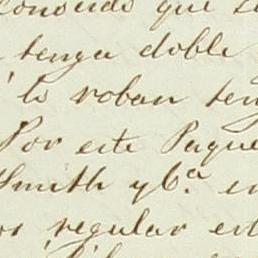 conocido que
tenga doble
lo roban ten
Por este Paque
Smith y Cª. en
regular est